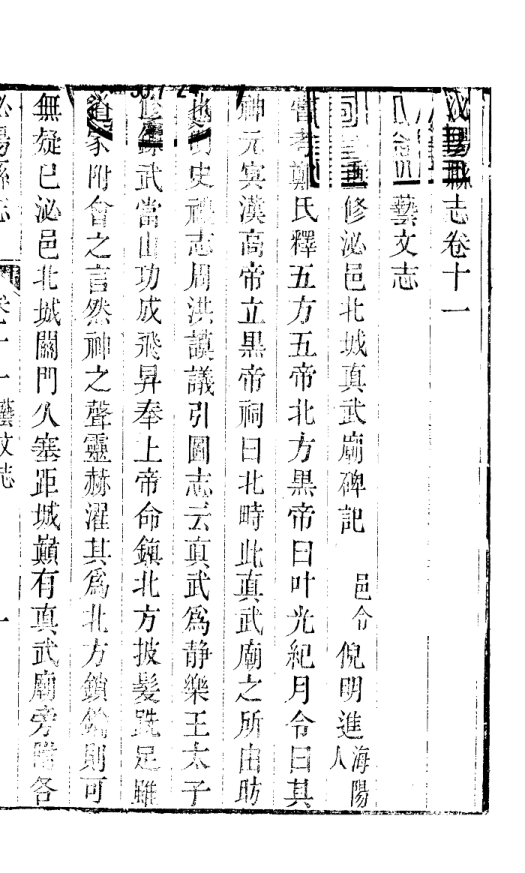 泌陽縣志卷十一
藝文志
修泌邑北城真武廟碑記 邑令 倪明進 海陽人
嘗考鄭氏釋五方五帝北方黑帝曰叶光紀月令曰其
神元宾漢高帝立黑帝祠曰北時此真武廟之所由昉
也 史禮志周洪謨議引圖志云真武爲静樂王太子
修鍊武當山功成飛昇奉上帝命鎮北方披髮跣足雖
道家附會之言然神之聲靈赫濯其爲北方鎖鑰則可
無疑已泌邑北城關門久塞距城巔有真武廟旁附各
泌陽縣志 卷十一 藝文志 一